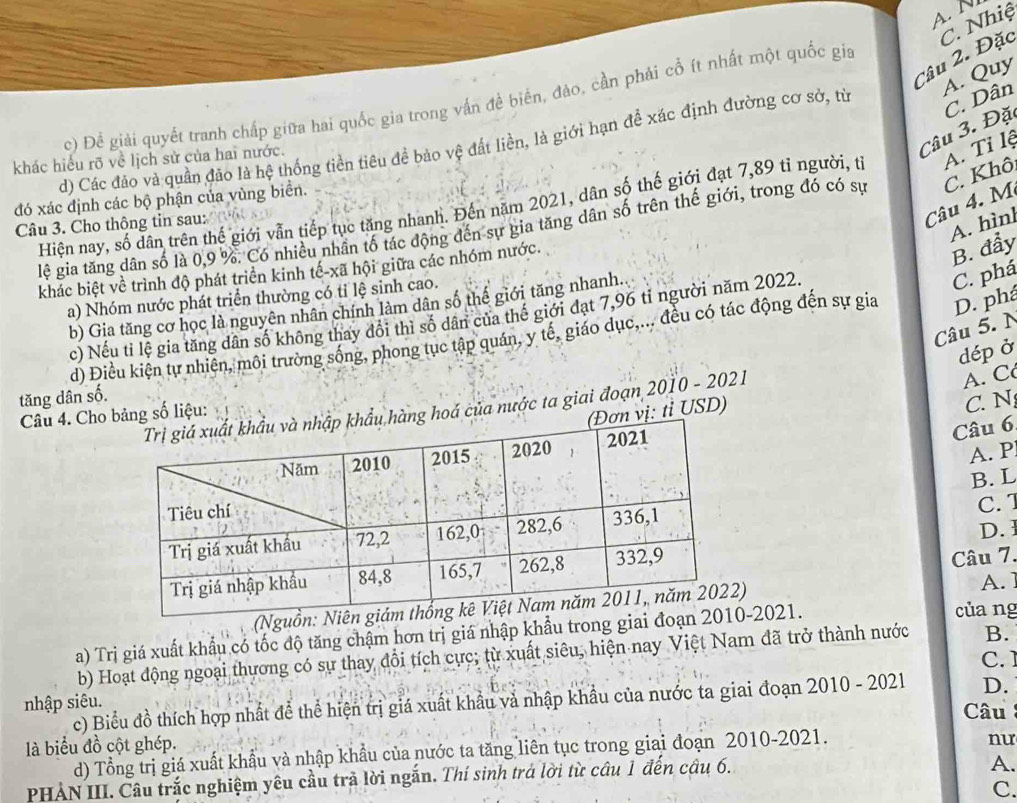 c) Để giải quyết tranh chấp giữa hai quốc gia trong vấn đề biển, đảo, cần phải có ít nhất một quốc gia
khác hiểu rõ về lịch sử của hai nước.
d) Các đảo và quần đảo là hệ thống tiền tiêu để bảo vệ đất liền, là giới hạn để xác định đường cơ sở, từ
đó xác định các bộ phận của vùng biển.
Câu 3. Cho thông tin sau:
Hiện nay, số dân trên thế giới vẫn tiếp tục tăng nhanh. Đến năm 2021, dân số thế giới đạt 7,89 tỉ người, tỉ
lệ gia tăng dân số là 0,9 %. Có nhiều nhân tố tác động đến sự gia tăng dân số trên thế giới, trong đó có sự
khác biệt về trình độ phát triển kinh tế-xã hội giữa các nhóm nước.
a) Nhóm nước phát triển thường có tỉ lệ sinh cao.
b) Gia tăng cơ học là nguyên nhân chính làm dân số thế giới tăng nhanh.
c) Nếu tỉ lệ gia tăng dân số không thay đổi thì số dân của thế giới đạt 7,96 tỉ người năm 2022.
d) Điều kiện tự nhiên, môi trường sống, phong tục tập quán, y tế, giáo dục,... đều có tác động đến sự gia
tăng dân số.
Câu 4. Cho bảng số liệu:
Trị giá xuất khẩu và nhập khẩu hàng hoá của nước ta giai đoạn 2010 - 2021
(Đơn vị: tỉ USD)
Năm 2010 2015 2020 2021
Tiêu chí
Trị giá xuất khẩu 72,2 162,0 282,6 336,1
Trị giá nhập khẩu 84,8 165,7 262,8 332,9
(Nguồn: Niên giám thống kê Việt Nam năm 2011, năm 2022)
a) Trị giá xuất khẩu có tốc độ tăng chậm hơn trị giá nhập khẩu trong giai đoạn 2010-2021.
b) Hoạt động ngoại thương có sự thay đổi tích cực; từ xuất siêu, hiện nay Việt Nam đã trở thành nước
nhập siêu.
c) Biểu đồ thích hợp nhất để thể hiện trị giá xuất khẩu và nhập khẩu của nước ta giai đoạn 2010 - 2021
là biểu đồ cột ghép.
d) Tổng trị giá xuất khẩu và nhập khẩu của nước ta tăng liên tục trong giai đoạn 2010-2021.
PHẦN III. Câu trắc nghiệm yêu cầu trả lời ngắn. Thí sinh trả lời từ câu 1 đến câu 6.
C. Nhiệ
Câu 2. Đặc
A. Quy
C. Dân
Câu 3. Đặc
A. Tỉ lệ
C. Khô
Câu 4. M
A. hình
B. đẩy
C. phá
D. phá
Câu 5. N
dép ở
A. Có
C. N
Câu 6
A. P
B. L
C.
D.
Câu 7.
A.
của ng
B.
C.
D.
Câu
nư
A.
C.